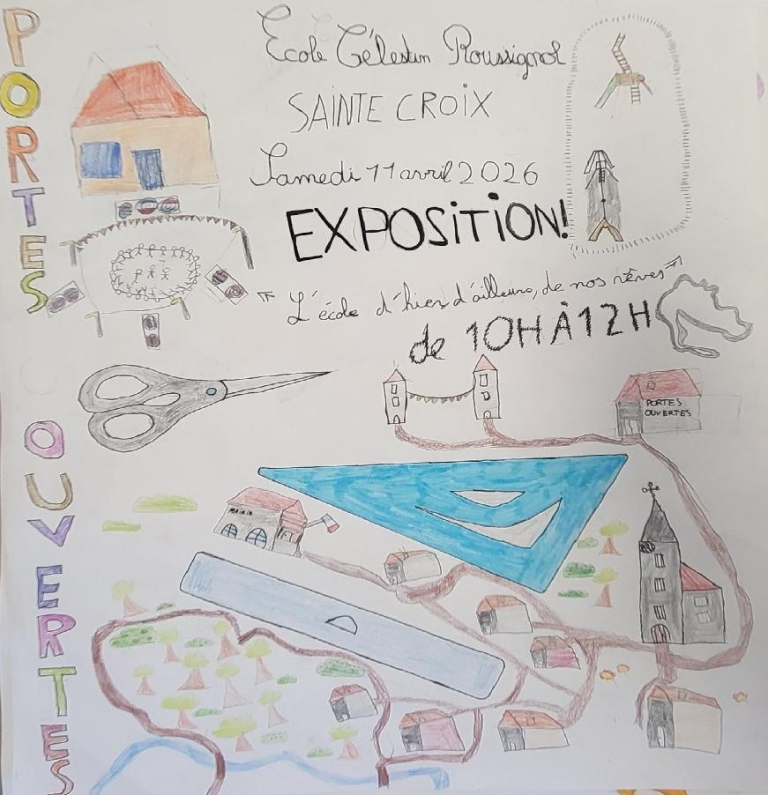 PORTES OUVERTES
Ecole Célestin Roussignol
SAINTE CROIX
Samedi 11 avril 2026
EXPOSITION!
L'école d'hier, d'ailleurs, de nos rêves
de 10H À 12H
PORTES
OUVERTES
MAIRIE